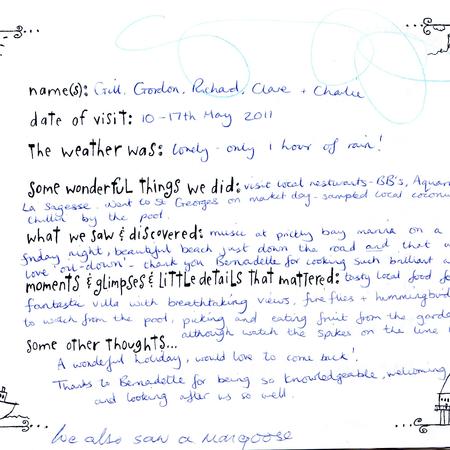 name(s): Gill, Gordon, Richard, Clare + Charlie
date of visit: 10-17th May 2011
The weather was: lovely - only 1 hour of rain!
Some wonderful things we did: visit local restaurants - BB's, Aquar
La Sagesse. Went to St Georges on market day - sampled local coconu
chilled by the pool.
what we saw & discovered: music at prickly bay marina on a
friday night, beautiful beach just down the road and that w
love "oil-down" - thank you Bernadette for cooking such brilliant
moments & glimpses & little details that mattered: tasty local food
fantastic villa with breathtaking views, fire flies + hummingbird
to watch from the pool, picking and eating fruit from the garde
although watch the spikes on the lime
some other thoughts...
A wonderful holiday, would love to come back!
Thanks to Bernadette for being so knowledgeable, welcoming
and looking after us so well.
We also saw a Mongoose